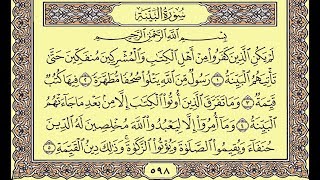 سورة البينة
بسم الله الرحمن الرحيم
لَمْ يَكُنِ الَّذِينَ كَفَرُوا مِنْ أَهْلِ الْكِتَابِ وَالْمُشْرِكِينَ مُنفَكِّينَ حَتَّىٰ
تَأْتِيَهُمُ الْبَيِّنَةُ ١ رَسُولٌ مِّنَ اللَّهِ يَتْلُوا صُحُفًا مُّطَهَّرَةً ٢ فِيهَا كُتُبٌ
قَيِّمَةٌ ٣ وَمَا تَفَرَّقَ الَّذِينَ أُوتُوا الْكِتَابَ إِلَّا مِن بَعْدِ مَا جَاءَتْهُمُ
الْبَيِّنَةُ ٤ وَمَا أُمِرُوا إِلَّا لِيَعْبُدُوا اللَّهَ مُخْلِصِينَ لَهُ الدِّينَ
حُنَفَاءَ وَيُقِيمُوا الصَّلَوٰةَ وَيُؤْتُوا الزَّكَوٰةَ وَذَٰلِكَ دِينُ الْقَيِّمَةِ ٥
٥٩٨